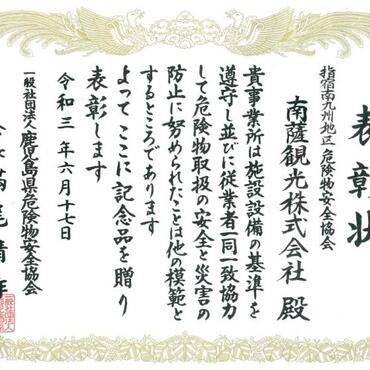 表彰状
指宿南九州地区危険物安全協会
南薩観光株式会社 殿
貴事業所は施設設備の基準を
遵守し並びに従業者一同一致協力
して危険物取扱の安全と災害の
防止に努められたことは他の模範と
するところであります
よってここに記念品を贈り
表彰します
令和三年六月十七日
一般社団法人 鹿児島県危険物安全協会